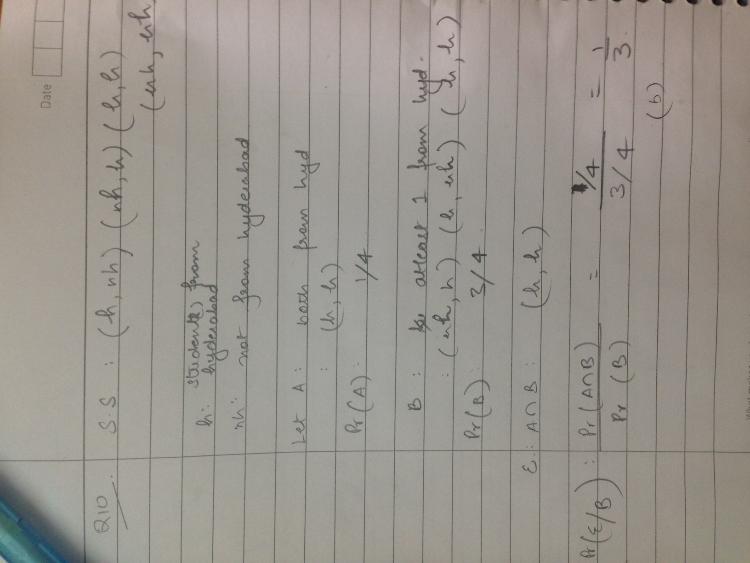 Date
Q10. S.S : (h, nh) (nh, h) (h, h)
(nh, nh
h: student(s) from
hyderabad
nh: not from hyderabad
Let A : both from hyd
: (h, h)
Pr(A) : 1/4
B : atleast 1 from hyd.
: (nh, h) (h, nh) (h, h)
Pr(B) : 3/4
E : A∩B : (h, h)
Pr(E/B) : Pr(A∩B) / Pr(B) = 1/4 / 3/4 = 1/3
(b)